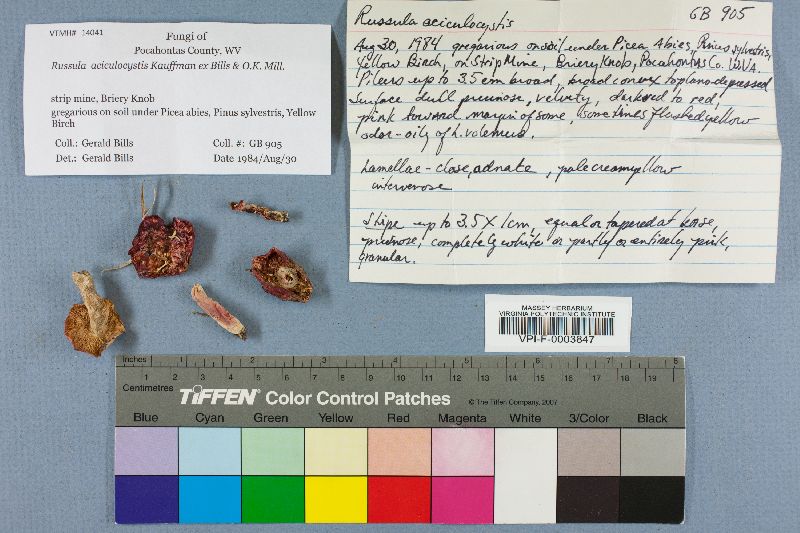 VTMH# 14041
Fungi of
Pocahontas County, WV
Russula aciculocystis Kauffman ex Bills & O.K. Mill.
strip mine, Briery Knob
gregarious on soil under Picea abies, Pinus sylvestris, Yellow
Birch
Coll.: Gerald Bills Coll. #: GB 905
Det.: Gerald Bills Date 1984/Aug/30
Russula aciculocystis GB 905
Aug 30, 1984 gregarious on soil under Picea Abies, Pinus sylvestris,
Yellow Birch, on Strip Mine, Briery Knob, Pocahontas Co. W.VA.
Pileus up to 3.5 cm broad, broad convex to plano-depressed
Surface dull pruinose, velvety, dark red to red,
pink toward margin of some, sometimes flushed yellow
odor - oily of L. volemus.
Lamellae - close, adnate, pale cream yellow
intervenose
Stipe up to 3.5 X 1cm, equal or tapered at base,
pruinose, completely white or partly or entirely pink,
granular.
MASSEY HERBARIUM
VIRGINIA POLYTECHNIC INSTITUTE
VPI-F-0003847
Inches 1 2 3 4 5 6 7 8
Centimetres 1 2 3 4 5 6 7 8 9 10 11 12 13 14 15 16 17 18 19
TIFFEN Color Control Patches © The Tiffen Company, 2007
Blue Cyan Green Yellow Red Magenta White 3/Color Black